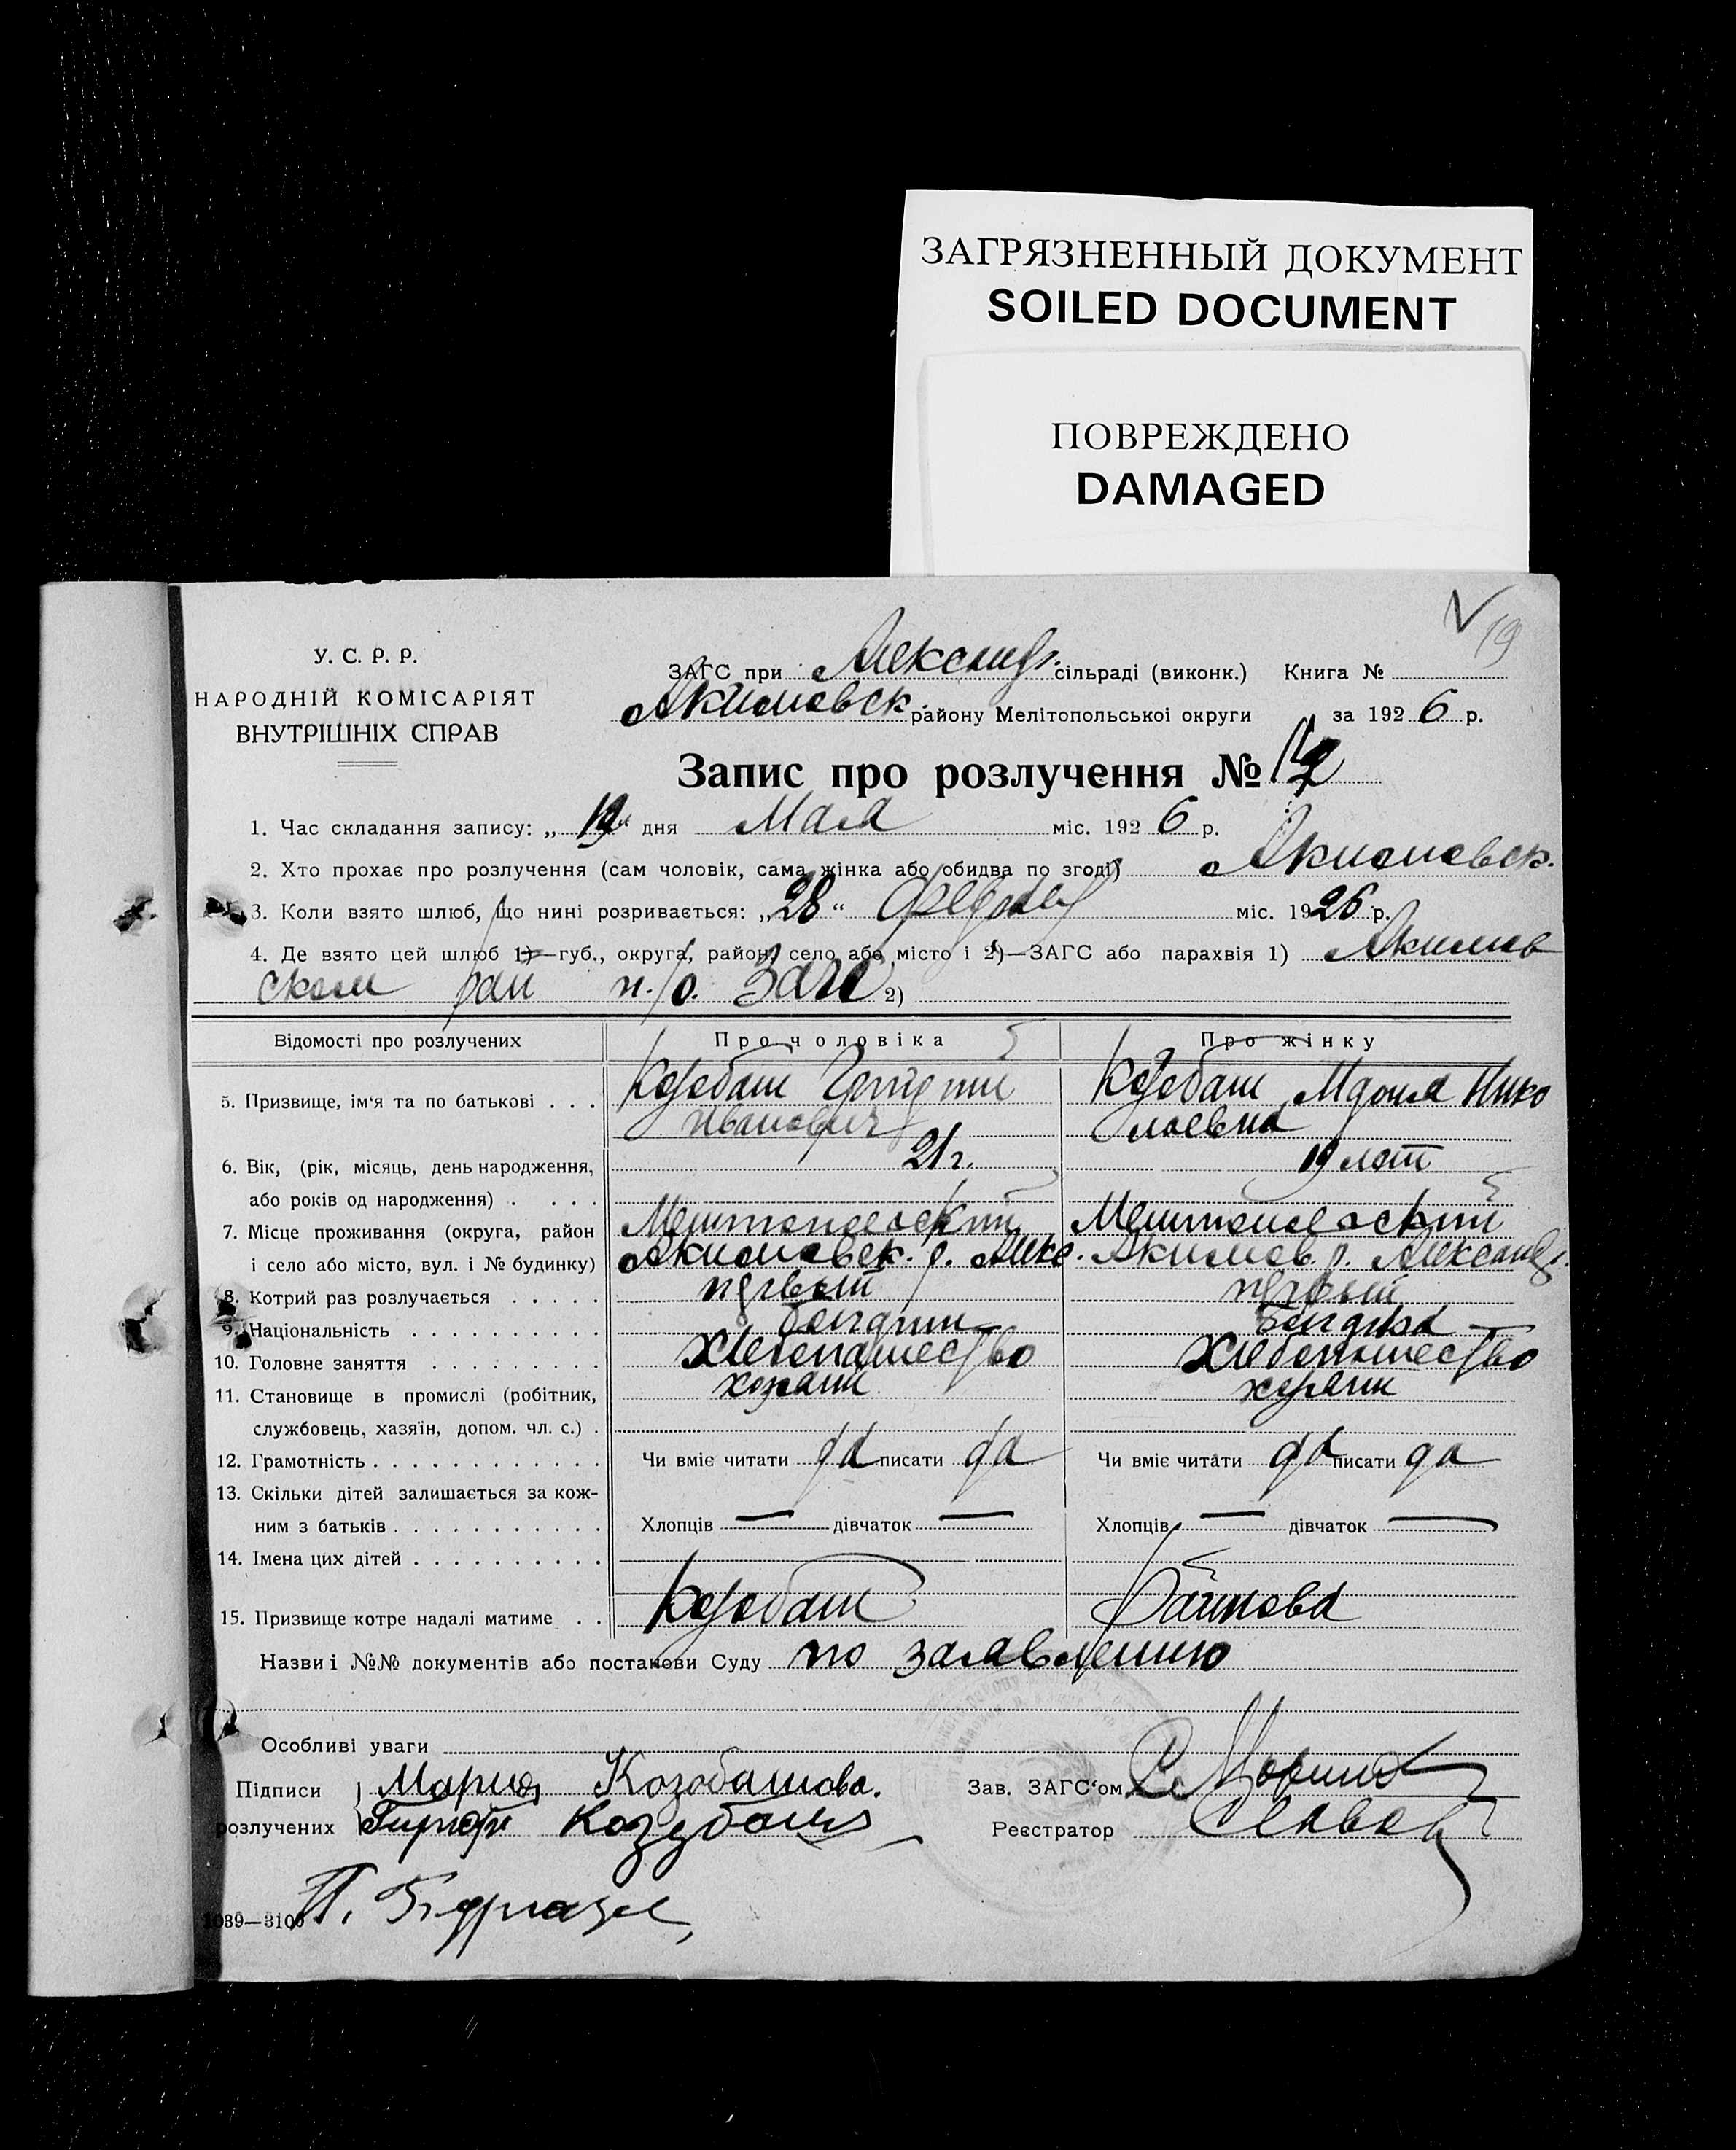 ЗАГРЯЗНЕННЫЙ ДОКУМЕНТ
SOILED DOCUMENT
ПОВРЕЖДЕНО
DAMAGED
19
У. С. Р. Р.
НАРОДНІЙ КОМІСАРІЯТ
ВНУТРІШНІХ СПРАВ
ЗАГС при Александр. сільраді (виконк.) Книга №
Акимовск. району Мелітопольської округи за 1926 р.
Запис про розлучення № 12
1. Час складання запису: „ “ дня Мая міс. 1926 р.
2. Хто прохає про розлучення (сам чоловік, сама жінка або обидва по згоді) Акимовск.
3. Коли взято шлюб, що нині розривається: „28“ міс. 1926 р.
4. Де взято цей шлюб 1)—губ., округа, район, село або місто і 2)—ЗАГС або парахвія 1) Акимов
ском рай п./о. Загс 2)
Відомості про розлучених
Про чоловіка
Про жінку
5. Призвище, ім'я та по батькові . . .
Козобаш Григорий
Иванович
Козобаш Мария Нико
лаевна
6. Вік, (рік, місяць, день народження,
або років од народження) . . . .
21 г.
19 лет
7. Місце проживання (округа, район
і село або місто, вул. і № будинку)
Мелитопольский
Акимовск. р. Алекс.
Мелитопольский
Акимов. р. Александр.
8. Котрий раз розлучається . . . . .
первый
первый
9. Національність . . . . . . . . . .
болгарин
болгарка
10. Головне заняття . . . . . . . . .
Хлебопашество
Хлебопашество
11. Становище в промислі (робітник,
службовець, хазяїн, допом. чл. с.) .
12. Грамотність . . . . . . . . . . . .
Чи вміє читати да писати да
Чи вміє читати да писати да
13. Скільки дітей залишається за кож-
ним з батьків . . . . . . . . . . .
Хлопців — дівчаток —
Хлопців — дівчаток —
14. Імена цих дітей . . . . . . . . . .
15. Призвище котре надалі матиме . .
Козобаш
Назви і №№ документів або постанови Суду по заявлению
Особливі уваги
Підписи Мария Козобашова.
розлучених
Зав. ЗАГС'ом
Реєстратор
1039—3100